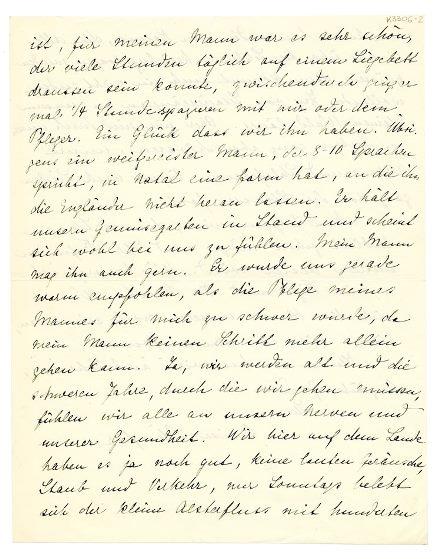 K3306-2
ist, für meinen Mann war es sehr schön,
der viele Stunden täglich auf einem Liegebett
draussen sein konnte, zwischendurch ging er
mal 1/4 Stunde spazieren mit mir oder dem
Pfleger. Ein Glück dass wir ihn haben. Übri-
gens ein weitgereister Mann, der 8-10 Sprachen
spricht, in Natal eine Farm hat, an die ihn
die Engländer nicht heran lassen. Er hält
unsern Gemüsegarten in Stand und scheint
sich wohl bei uns zu fühlen. Mein Mann
mag ihn auch gern. Er wurde uns gerade
warm empfohlen, als die Pflege meines
Mannes für mich zu schwer wurde, da
mein Mann keinen Schritt mehr allein
gehen kann. Ja, wir werden alt und die
schweren Jahre, durch die wir gehen müssen,
fühlen wir alle an unsern Nerven und
unserer Gesundheit. Wir hier auf dem Lande
haben es ja noch gut, keine lauten Geräusche,
Staub und Verkehr, nur Sonntags belebt
sich der kleine Alsterfluss mit hunderten